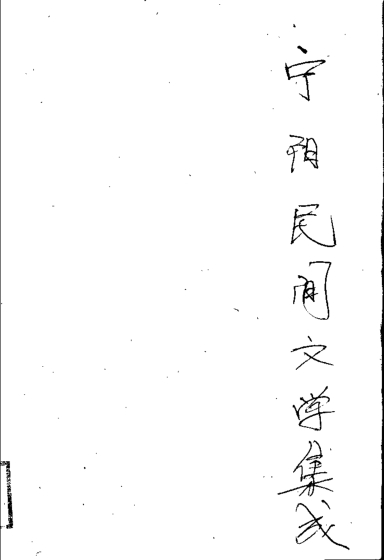 宁阳民间文学集成